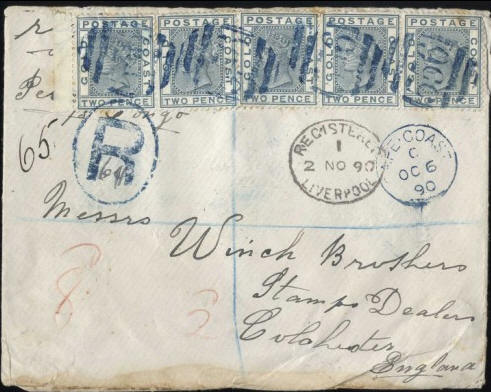 POSTAGE POSTAGE POSTAGE POSTAGE POSTAGE
GOLD COAST GOLD COAST GOLD COAST GOLD COAST GOLD COAST
TWO PENCE TWO PENCE TWO PENCE TWO PENCE TWO PENCE
Per
Congo
65
R
REGISTERED
1
2 NO 90
LIVERPOOL
COAST
C
OC 6
90
Messrs
Winch Brothers
Stamps Dealers
Colchester
England